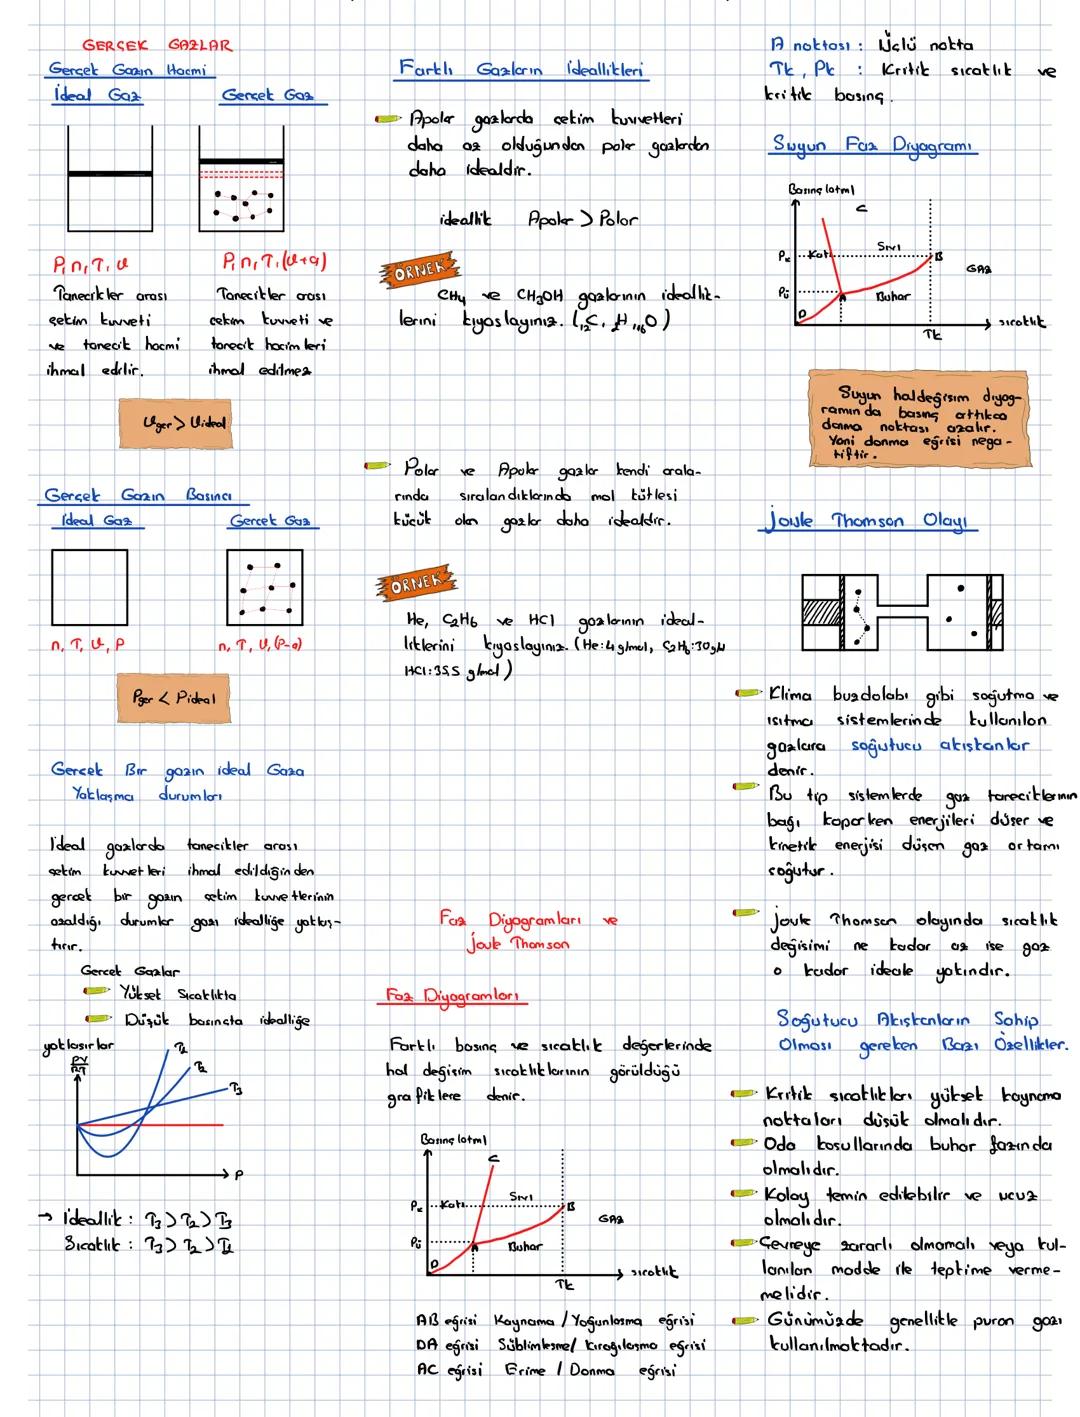 GERÇEK GAZLAR
Gerçek Gazın Hacmi
İdeal Gaz
Gerçek Gaz
P, n, T, V
P, n, T, (V+a)
Tanecikler arası
çekim kuvveti
ve tanecik hacmi
ihmal edilir.
Tanecikler arası
çekim kuvveti ve
tanecik hacimleri
ihmal edilmez
Vger > Videal
Gerçek Gazın Basıncı
İdeal Gaz
Gerçek Gaz
n, T, V, P
n, T, V, (P-a)
Pger < Pideal
Gerçek Bir gazın ideal Gaza
Yaklaşma durumları
İdeal gazlarda tanecikler arası
çekim kuvvetleri ihmal edildiğinden
gerçek bir gazın çekim kuvvetlerinin
azaldığı durumlar gazı idealliğe yaklaş-
tırır.
Gerçek Gazlar
Yüksek Sıcaklıkta
Düşük basınçta idealliğe
yaklaşırlar
PV
RT
T1
T2
T3
P
→ ideallik : T3 > T2 > T3
Sıcaklık : T3 > T2 > T1
Farklı Gazların İdeallikleri
Apolar gazlarda çekim kuvvetleri
daha az olduğundan polar gazlardan
daha idealdir.
ideallik Apolar > Polar
ÖRNEK
CH4 ve CH3OH gazlarının ideallik-
lerini kıyaslayınız. (12C, 1H, 16O)
Polar ve Apolar gazlar kendi arala-
rında sıralandıklarında mol kütlesi
küçük olan gazlar daha idealdir.
ÖRNEK
He, C2H6 ve HCl gazlarının ideal-
liklerini kıyaslayınız. (He:4 g/mol, C2H6:30g/M
HCl:35,5 g/mol)
Faz Diyagramları ve
Joule Thomson
Faz Diyagramları
Farklı basınç ve sıcaklık değerlerinde
hal değişim sıcaklıklarının görüldüğü
grafiklere denir.
Basınç (atm)
C
Pk
Katı
Sıvı
B
GAZ
Pü
A
Buhar
D
sıcaklık
Tk
AB eğrisi Kaynama / Yoğunlaşma eğrisi
DA eğrisi Süblimleşme/ kırağılaşma eğrisi
AC eğrisi Erime / Donma eğrisi
A noktası : Üçlü nokta
Tk, Pk : Kritik sıcaklık ve
kritik basınç.
Suyun Faz Diyagramı
Basınç (atm)
C
Pk
Katı
Sıvı
B
GAZ
Pü
A
Buhar
D
sıcaklık
Tk
Suyun haldeğişim diyag-
ramında basınç arttıkca
donma noktası azalır.
Yani donma eğrisi nega-
tiftir.
Joule Thomson Olayı
Klima buzdolabı gibi soğutma ve
ısıtma sistemlerinde kullanılan
gazlara soğutucu akışkanlar
denir.
Bu tip sistemlerde gaz taneciklerinin
bağı koparken enerjileri düşer ve
kinetik enerjisi düşen gaz ortamı
soğutur.
joule Thomson olayında sıcaklık
değişimi ne kadar az ise gaz
o kadar ideale yakındır.
Soğutucu Akışkanların Sahip
Olması gereken Bazı Özellikler.
Kritik sıcaklıkları yüksek kaynama
noktaları düşük olmalıdır.
Oda koşullarında buhar fazında
olmalıdır.
Kolay temin edilebilir ve ucuz
olmalıdır.
Çevreye zararlı olmamalı veya kul-
lanılan madde ile tepkime verme-
melidir.
Günümüzde genellikle puron gazı
kullanılmaktadır.